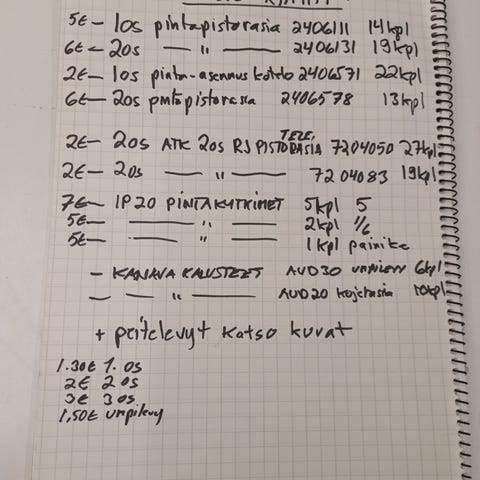 5€ – 1os pintapistorasia 2406111 14kpl
6€ – 2os — " — 2406131 19kpl
2€ – 1os pinta-asennus kotelo 2406571 22kpl
6€ – 2os pintapistorasia 2406578 13kpl
2€ – 2os ATK 2os RJ PISTORASIA TELE, 7204050 27kpl
2€ – 2os — " — 7204083 19kpl
7€ – IP20 PINTAKYTKIMET 5kpl 5
5€ – — " — 2kpl 1/6
5€ – — " — 1kpl painike
– KANAVA KALUSTEET AUD30 UMPILEVY 6kpl
– — " — AUD20 kojerasia 10kpl
+ peitelevyt katso kuvat
1.30€ 1. os
2€ 2 os
3€ 3 os
1,50€ umpilevy